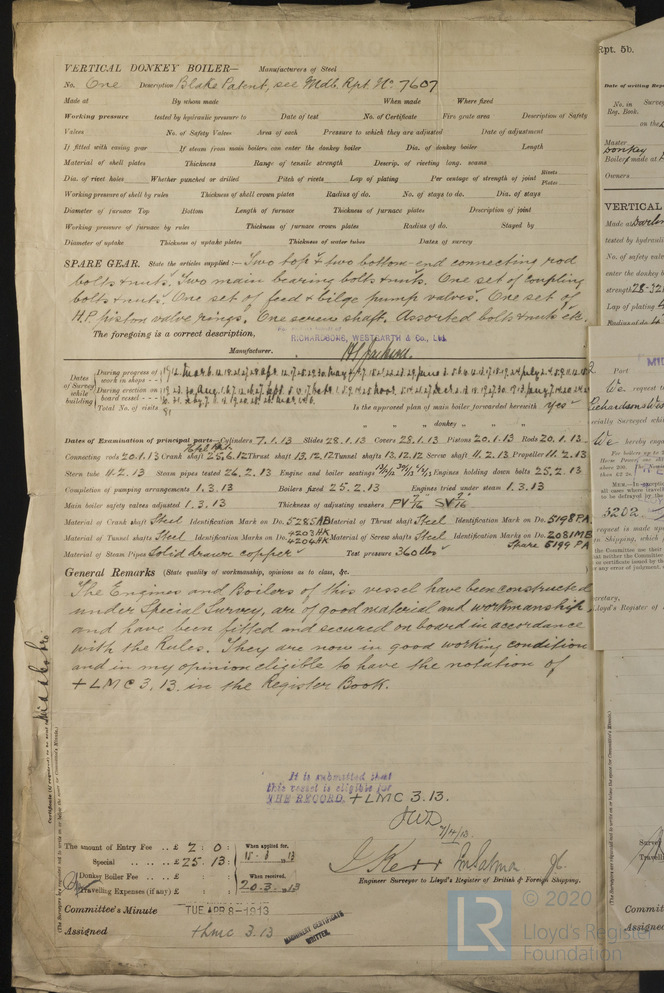 VERTICAL DONKEY BOILER— Manufacturers of Steel
No. One Description Blake Patent, see Mdb. Rpt. No 7607
Made at By whom made When made Where fixed
Working pressure tested by hydraulic pressure to Date of test No. of Certificate Fire grate area Description of Safety
Valves No. of Safety Valves Area of each Pressure to which they are adjusted Date of adjustment
If fitted with easing gear If steam from main boilers can enter the donkey boiler Dia. of donkey boiler Length
Material of shell plates Thickness Range of tensile strength Descrip. of riveting long. seams
Dia. of rivet holes Whether punched or drilled Pitch of rivets Lap of plating Per centage of strength of joint Rivets Plates
Working pressure of shell by rules Thickness of shell crown plates Radius of do. No. of stays to do. Dia. of stays
Diameter of furnace Top Bottom Length of furnace Thickness of furnace plates Description of joint
Working pressure of furnace by rules Thickness of furnace crown plates Radius of do. Stayed by
Diameter of uptake Thickness of uptake plates Thickness of water tubes Dates of survey
SPARE GEAR. State the articles supplied:— Two top & two bottom-end connecting rod
bolts & nuts. Two main bearing bolts & nuts. One set of coupling
bolts & nuts. One set of feed & bilge pump valves. One set of
H.P. piston valve rings. One screw shaft. Assorted bolts & nuts etc.
The foregoing is a correct description,
RICHARDSONS, WESTGARTH & Co., Ltd.
Manufacturer.
Dates of Survey while building
During progress of work in shops - -
During erection on board vessel - - -
Total No. of visits 81
Is the approved plan of main boiler forwarded herewith Yes
" " " donkey " " "
Dates of Examination of principal parts—Cylinders 7.1.13 Slides 28.1.13 Covers 28.1.13 Pistons 20.1.13 Rods 20.1.13
Connecting rods 20.1.13 Crank shaft 25.6.12 Thrust shaft 13.12.12 Tunnel shafts 13.12.12 Screw shaft 11.2.13 Propeller 11.2.13
Stern tube 11.2.13 Steam pipes tested 26.2.13 Engine and boiler seatings Engines holding down bolts 25.2.13
Completion of pumping arrangements 1.3.13 Boilers fixed 25.2.13 Engines tried under steam 1.3.13
Main boiler safety valves adjusted 1.3.13 Thickness of adjusting washers
Material of Crank shaft Steel Identification Mark on Do. 5285AB Material of Thrust shaft Steel Identification Mark on Do. 5198PA
Material of Tunnel shafts Steel Identification Marks on Do. 4203HK 4204HK Material of Screw shafts Steel Identification Marks on Do. 2081MB
Spare 5199 PA
Material of Steam Pipes Solid drawn copper Test pressure 360 lbs
General Remarks (State quality of workmanship, opinions as to class, &c.
The Engines and Boilers of this vessel have been constructed
under Special Survey, are of good material and workmanship
and have been fitted and secured on board in accordance
with the Rules. They are now in good working condition
and in my opinion eligible to have the notation of
+ LMC 3.13. in the Register Book.
It is submitted that
this vessel is eligible for
THE RECORD. + LMC 3.13.
JWD
7/4/13.
The amount of Entry Fee .. £ 2 : 0 : When applied for,
Special .. £ 25 : 13 :
Donkey Boiler Fee .. £ : : When received,
Travelling Expenses (if any) £ : : 20.3.13
Engineer Surveyor to Lloyd's Register of British & Foreign Shipping.
Committee's Minute TUE APR 8-1913
Assigned + LMC 3.13
MACHINERY CERTIFICATE
WRITTEN.
© 2020
LR
Lloyd's Register
Foundation
Rpt. 5b.
Date of writing Rep
No. in Survey
Reg. Book.
on the
Master
Donkey
Boiler made at
Owners
VERTICAL
Made at
tested by hydraulic
No. of safety valv
enter the donkey b
strength 28-32
Lap of plating
Radius of do.
Part
We request to
We hereby engag
3202
request is made ap
n Shipping, which
the Committee use their
ecretary,
Lloyd's Register of
Survey
Travell
Committ
Assigned